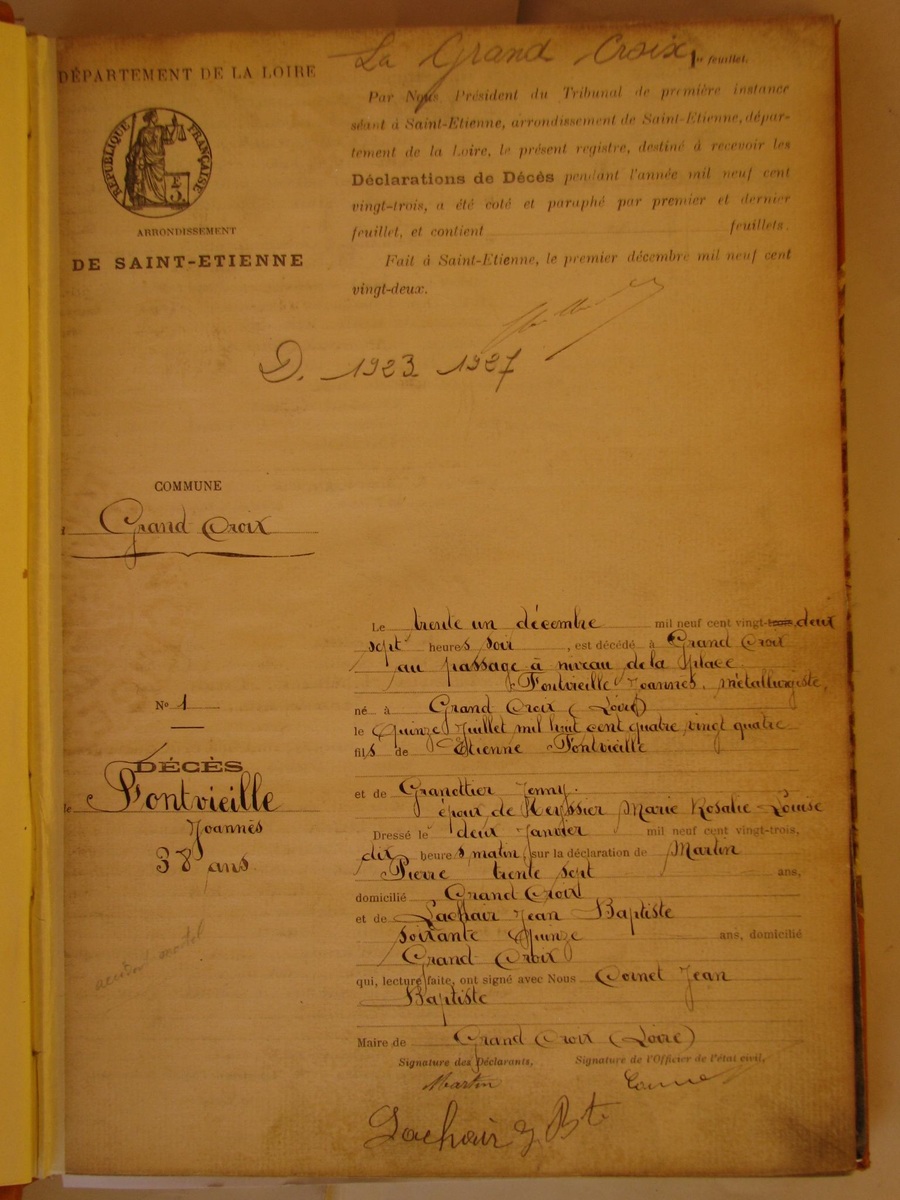 La Grand Croix 1er feuillet.
DÉPARTEMENT DE LA LOIRE
RÉPUBLIQUE FRANÇAISE
ARRONDISSEMENT
DE SAINT-ETIENNE
Par Nous Président du Tribunal de première instance
séant à Saint-Etienne, arrondissement de Saint-Etienne, dépar-
tement de la Loire, le présent registre, destiné à recevoir les
Déclarations de Décès pendant l'année mil neuf cent
vingt-trois, a été coté et paraphé par premier et dernier
feuillet, et contient feuillets.
Fait à Saint-Etienne, le premier décembre mil neuf cent
vingt-deux.
D. 1923 1927
COMMUNE
Grand Croix
N° 1
DÉCÈS
de Fontvieille
Joannès
38 ans
Le trente un décembre mil neuf cent vingt-trois deux
sept heures soir, est décédé à Grand Croix
au passage à niveau de la place
Fontvieille Joannès, métallurgiste,
né à Grand Croix (Loire)
le Quinze Juillet mil huit cent quatre vingt quatre
fils de Etienne Fontvieille
et de Granottier Jenny.
époux de Heyssier Marie Rosalie Louise
Dressé le deux Janvier mil neuf cent vingt-trois,
dix heures matin, sur la déclaration de Martin
Pierre trente sept ans,
domicilié Grand Croix
et de Lachair Jean Baptiste
soixante Quinze ans, domicilié
Grand Croix
qui, lecture faite, ont signé avec Nous Cornet Jean
Baptiste
Maire de Grand Croix (Loire)
Signature des Déclarants, Signature de l'Officier de l'état civil,
Martin
Lachair J Bt